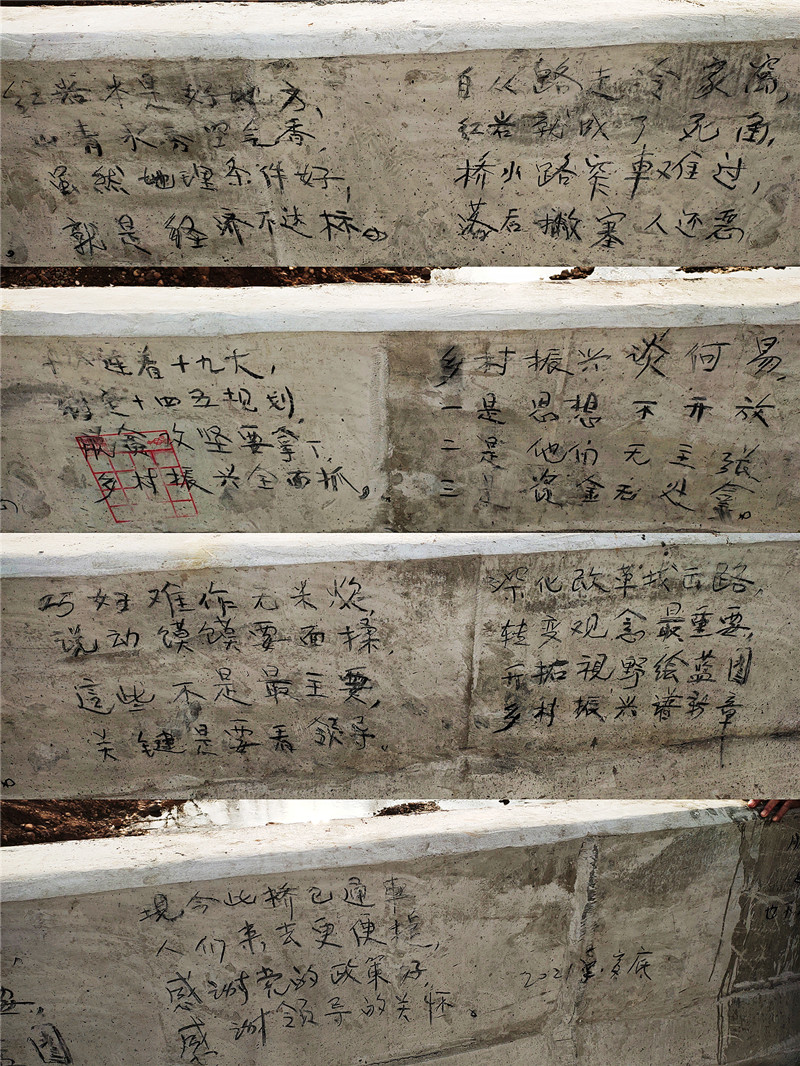 红岩本是好地方，
山青水秀空气香，
虽然地理条件好，
就是经济不达标。
自从路走冷家窝，
红岩就成了死角，
桥小路窄車难过，
落后撇塞人还恶
连着十九大，
十四五规划，
攻坚要拿下，
乡村振兴全面抓。
乡村振兴谈何易，
一是思想不开放
二是他们无主张
三是资金无处拿。
巧妇难作无米炊，
说动馍馍要面揉，
這些不是最主要，
关键是要看领导。
深化改革找出路，
转变观念最重要，
开拓視野绘蓝图
乡村振兴谱新章
現今此桥已通車
人们来去更便捷，
感谢党的政策好，
感谢领导的关怀。
2021年